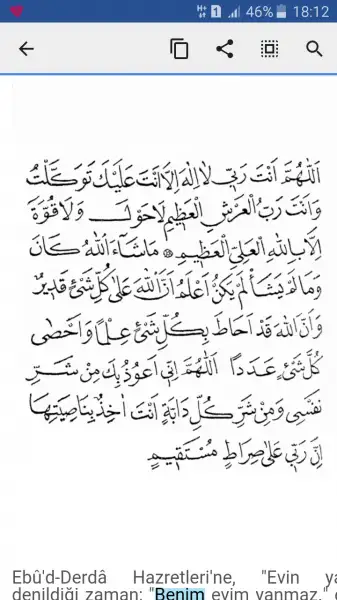 46% 18:12
اَللّٰهُمَّ اَنْتَ رَبِّي لَا اِلٰهَ اِلَّا اَنْتَ عَلَيْكَ تَوَكَّلْتُ
وَاَنْتَ رَبُّ الْعَرْشِ الْعَظِيمِ لَا حَوْلَ وَلَا قُوَّةَ
اِلَّا بِاللهِ الْعَلِيِّ الْعَظِيمِ ۞ مَا شَاءَ اللهُ كَانَ
وَمَا لَمْ يَشَأْ لَمْ يَكُنْ اَعْلَمُ اَنَّ اللهَ عَلٰى كُلِّ شَيْءٍ قَدِيرٌ
وَاَنَّ اللهَ قَدْ اَحَاطَ بِكُلِّ شَيْءٍ عِلْمًا وَاَحْصٰى
كُلَّ شَيْءٍ عَدَدًا اَللّٰهُمَّ اِنِّي اَعُوذُ بِكَ مِنْ شَرِّ
نَفْسِي وَمِنْ شَرِّ كُلِّ دَابَّةٍ اَنْتَ اٰخِذٌ بِنَاصِيَتِهَا
اِنَّ رَبِّي عَلٰى صِرَاطٍ مُسْتَقِيمٍ
Ebû'd-Derdâ Hazretleri'ne, "Evin
denildiği zaman: "Benim evim yanmaz."